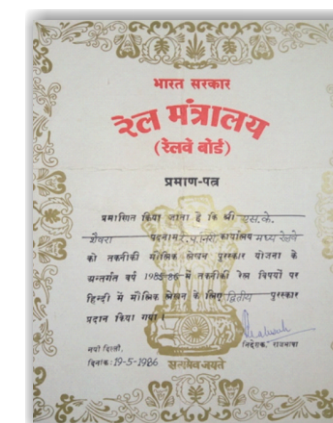 भारत सरकार
रेल मंत्रालय
(रेलवे बोर्ड)
प्रमाण-पत्र
प्रमाणित किया जाता है कि श्री एस.के.
पदनाम कार्यालय मध्य रेलवे
को तकनीकी मौलिक लेखन पुरस्कार योजना के
अन्तर्गत वर्ष 1985-86 में तकनीकी रेल विषयों पर
हिन्दी में मौलिक लेखन के लिए द्वितीय पुरस्कार
प्रदान किया गया।
नयी दिल्ली,
निदेशक, राजभाषा
दिनांक: 19-5-1986
सत्यमेव जयते